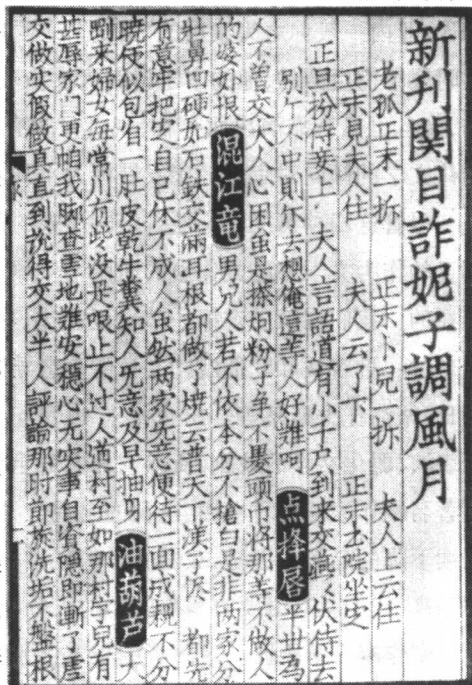 新刊関目詐妮子調風月
老孤正末一折 正末卜兒一折 夫人上云住
正末見夫人住 夫人云了下 正末書院坐定
正旦扮侍妾上 夫人言語道有小千户到来交燕〻伏侍去
別个不中則你去想俺這等人好難呵 点絳唇 半世為
人不曾交大人心困虽是搽胭粉子争不裹頭巾将那等不做人
的婆娘恨 混江竜 男兒人若不依本分不搶白是非两家分
壯鼻凹硬如石鉄交滿耳根都做了燒云普天下漢子儘 都先
有意牢把定自己休不成人虽然两家无意便待一面成親不分
曉便似包着一肚皮乾牛糞知人无意及早抽身 油葫芦 大
剛来婦女每常川有些没是哏止不过人道村至如那村字兒有
甚辱家门更怕我脚查雪地難安穏心无实事自資隐即漸了虚
交做实假做真直到說得交大半人評論那时節旋洗垢不盤根